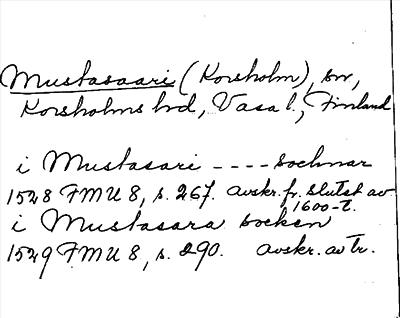 Mustasaari (Korsholm), sn,
Korsholms hd, Vasa l., Finland
i Mustasari ---- sochnar
1528 FMU 8, s. 267. avskr. fr. slutet av
1600-t.
i Mustasara socken
1529 FMU 8, s. 290. avskr. av tr.